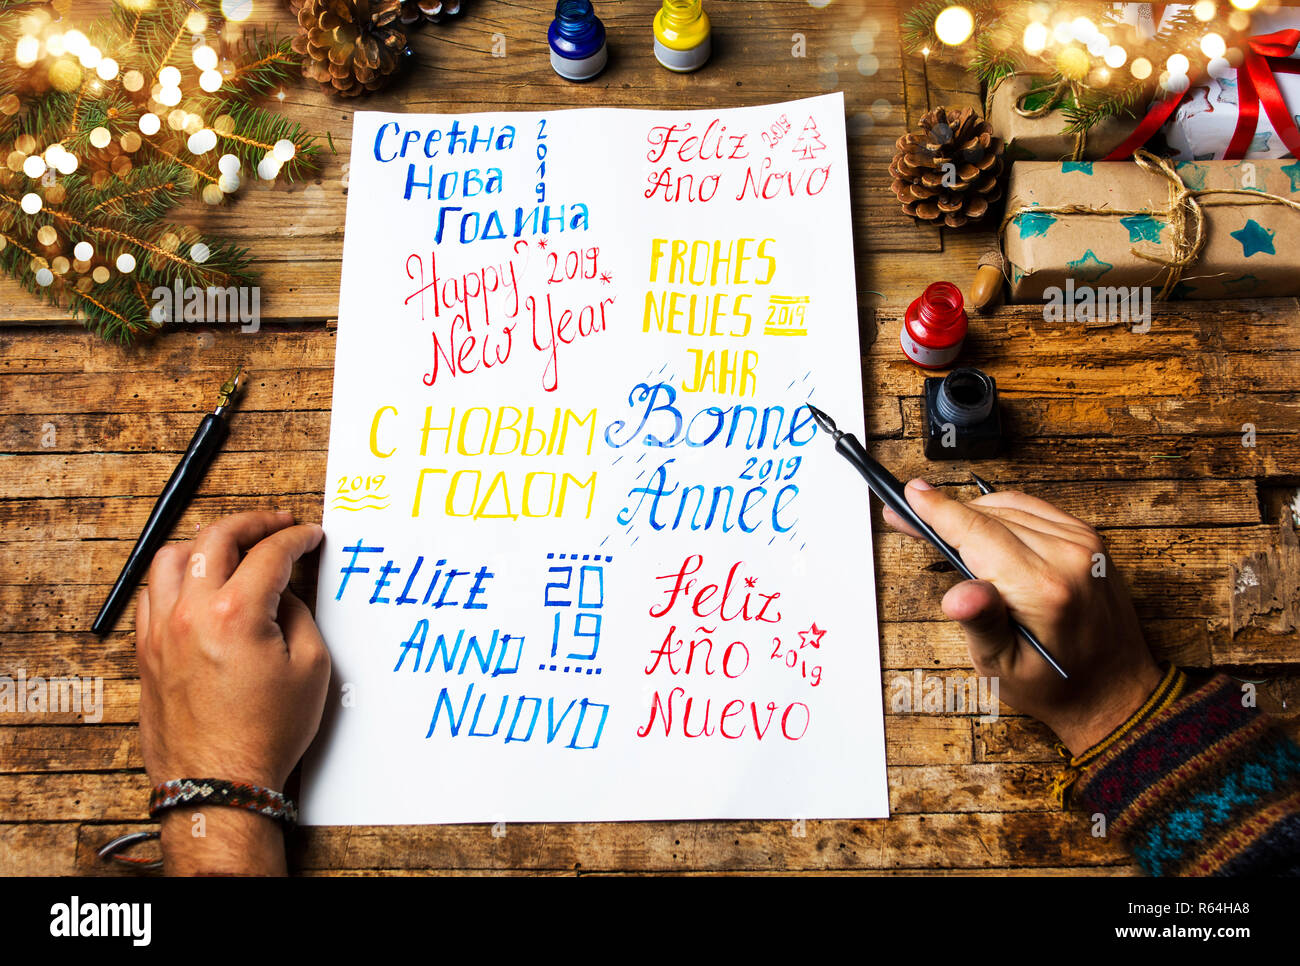 Срећна 2019
Нова
Година
Feliz 2019
Ano Novo
Happy 2019
New Year
FROHES
NEUES 2019
JAHR
С НОВЫМ
2019 ГОДОМ
Bonne
2019
Année
FELICE 20
ANNO 19
NUOVO
Feliz
Año 2019
Nuevo
a
alamy
alamy stock photo
R64HA8
www.alamy.com